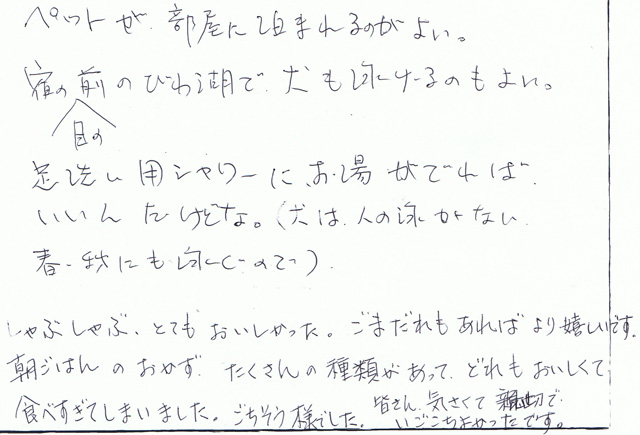 ペットが部屋に泊まれるのがよい。
宿の目の前のびわ湖で犬も泳げるのもよい。
足洗い用シャワーにお湯がでれば
いいんだけどな。(犬は、人の泳がない
春・秋にも泳ぐので)
しゃぶしゃぶ、とてもおいしかった。ごまだれもあればより嬉しいです。
朝ごはんのおかず、たくさんの種類があって、どれもおいしくて
食べすぎてしまいました。ごちそう様でした。皆さん、気さくで親切で
いごこちよかったです。